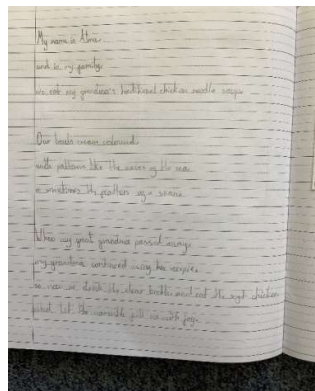 My name is
and in my family
we eat my grandma's traditional chicken noodle soup
Our bowls cream coloured
with patterns like the waves of the sea
or sometimes the pattern of a
When my great grandma passed away
my grandma continued using her recipe
so now we drink the clear broth and eat the soft chicken
and let the noodles fill us with joy.